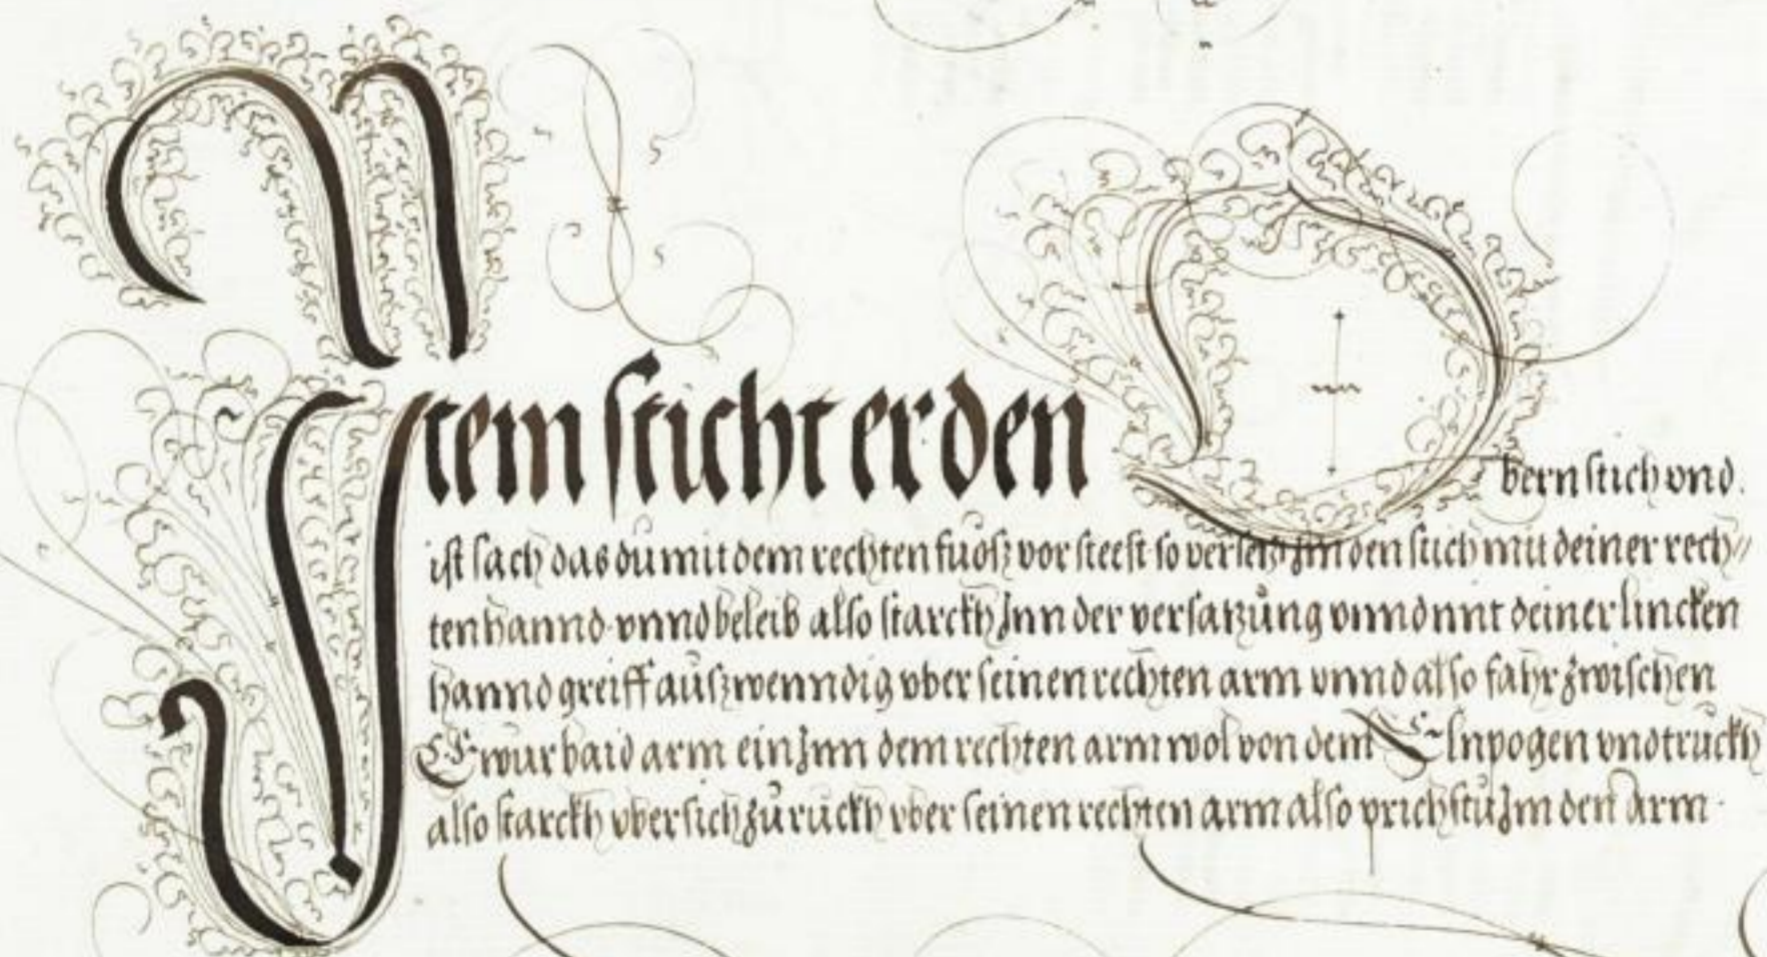 Item sticht er den Obern stich vnd.
ist sach das du mit dem rechten fuosz vor steest so versetz Im den stich mit deiner rech//
ten hannd. vnnd beleib also starckh Inn der versatzŭng vnnd mit deiner lincken
hannd greiff aŭszwenndig vber seinen rechten arm vnnd also fahr zwischen
Ewur baid arm ein Inn dem rechten arm wol von dem Elnpogen vnd truckh
also starckh vbersich zŭ ruckh vber seinen rechten arm also prichstŭ Im den Arm.